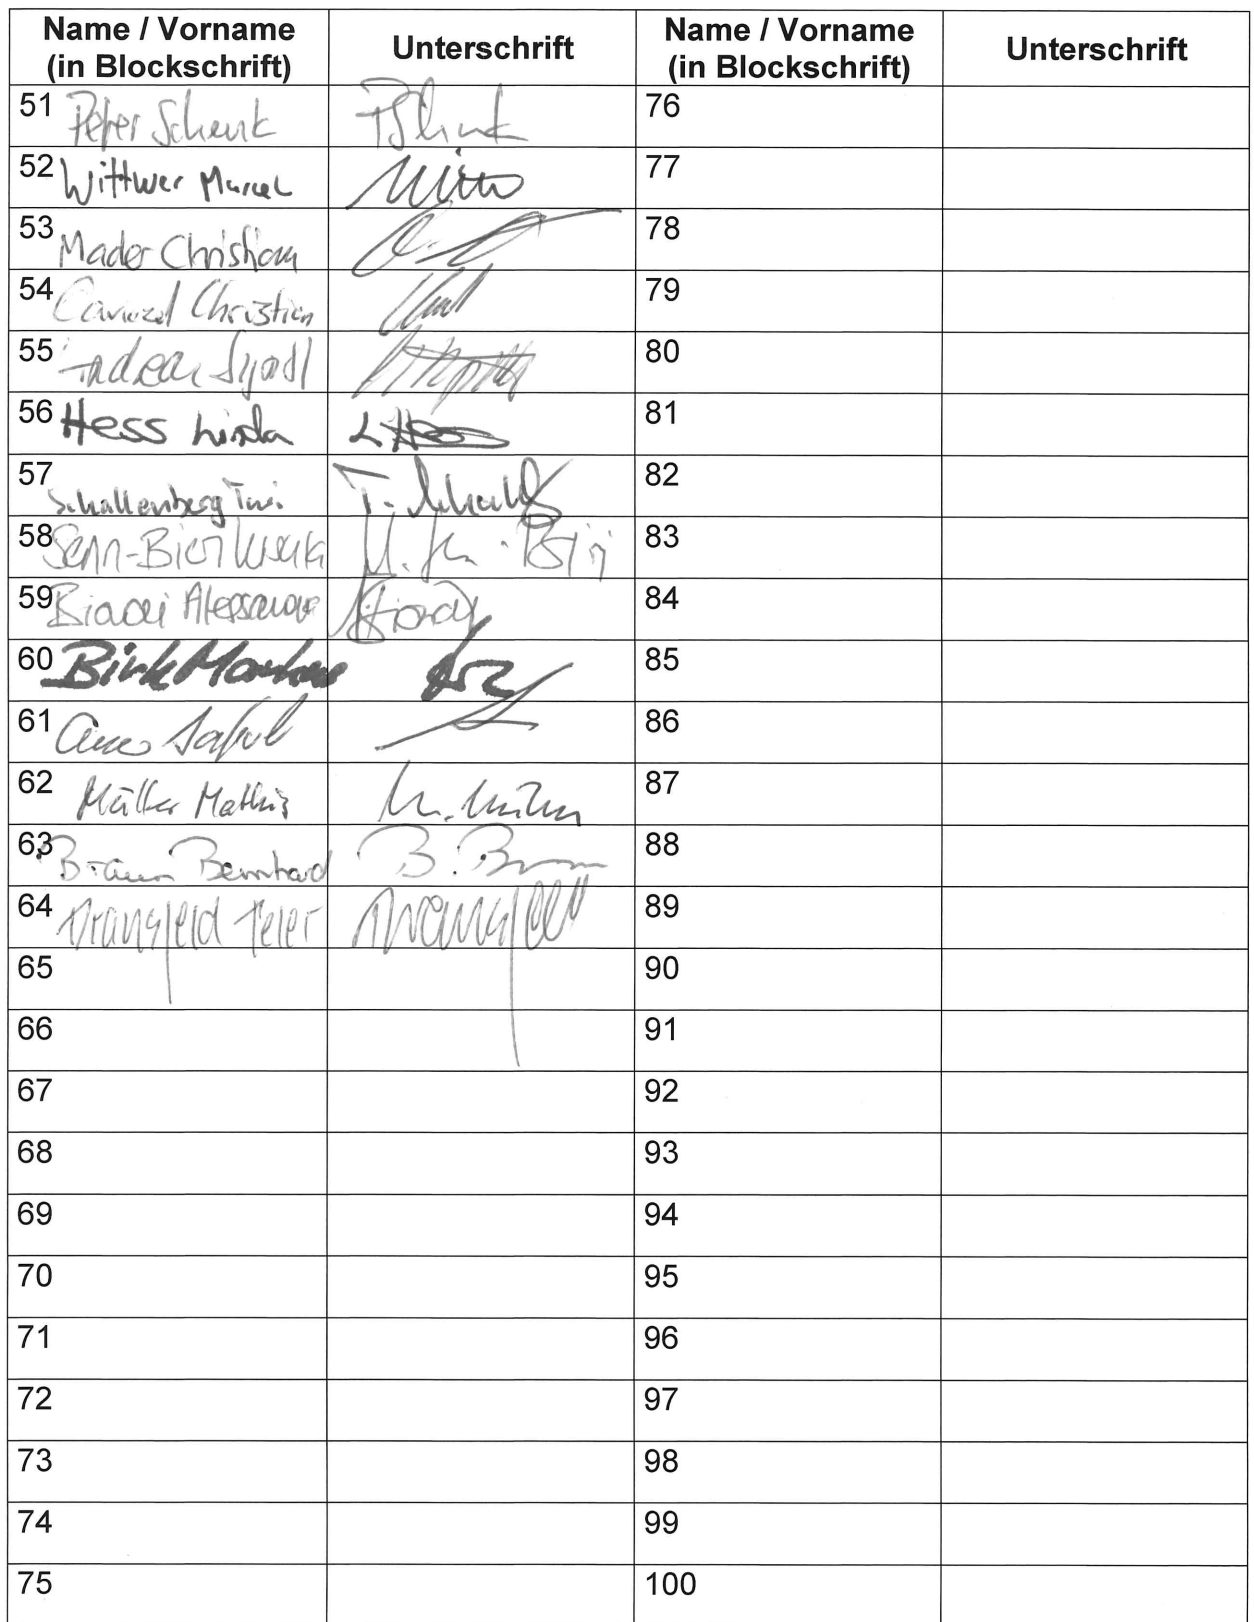 Name / Vorname (in Blockschrift) Unterschrift Name / Vorname (in Blockschrift) Unterschrift
51 Peter Schenk PSchenk 76
52 Wittwer Marcel 77
53 Mader Christian 78
54 Christian 79
55 Andreas 80
56 Hess Linda L Hess 81
57 Schallenberg T. 82
58 Senn- 83
59 84
60 Birk Markus 85
61 86
62 Müller Mathis M. Müller 87
63 Braun Bernhard B. Braun 88
64 Dransfeld Peter Dransfeld 89
65 90
66 91
67 92
68 93
69 94
70 95
71 96
72 97
73 98
74 99
75 100